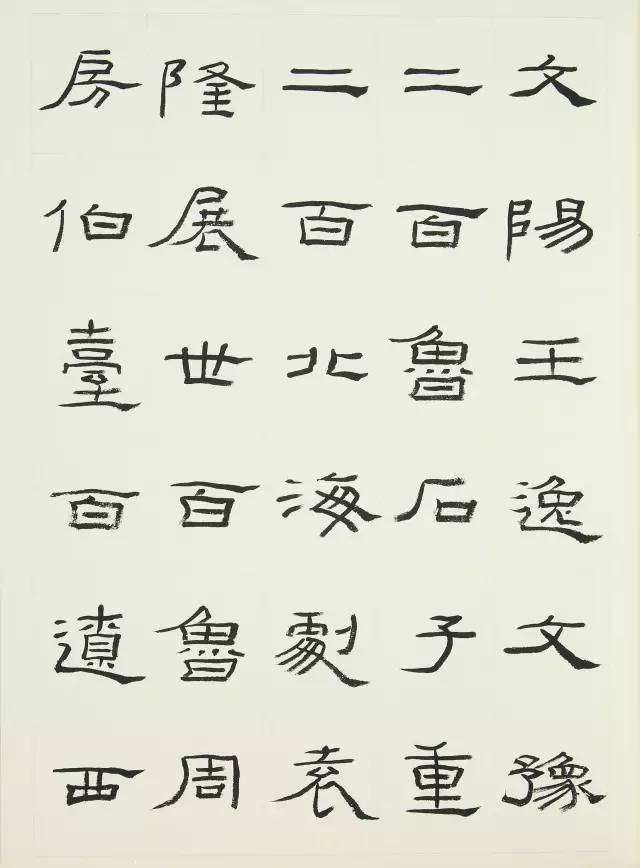 文陽王逸文豫
二百魯石子重
二百北海劇袁
隆展世百魯周
房伯臺百遼西